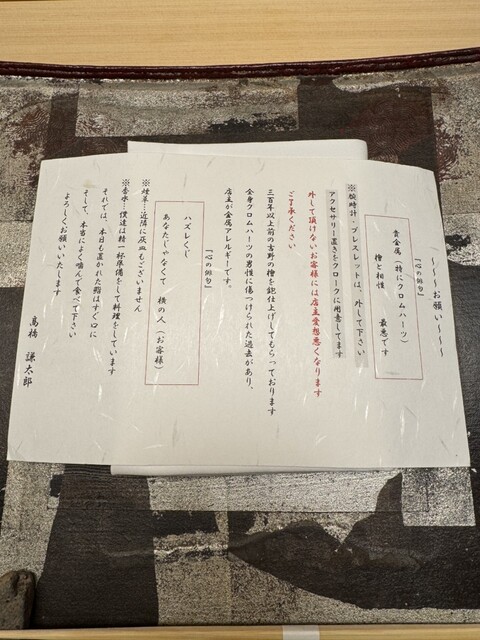 〜〜〜お願い〜〜〜
『心の俳句』
貴金属（特にクロムハーツ）
檜と相性　最悪です
※腕時計・ブレスレットは、外して下さい
アクセサリー置きをクロークに用意してます
外して頂けないお客様には店主愛想悪くなります
ご了承ください
三百年以上前の吉野の檜を鉋仕上げしてもらっております
全身クロムハーツの男性に傷つけられた過去があり、
店主が金属アレルギーです。
『心の俳句』
ハズレくじ
あなたじゃなくて　横の人（お客様）
※煙草…近隣に灰皿もございません
※香水…僕達は精一杯準備をして料理をしています
それでは、本日も置かれた鮨はすぐ口に
そして、本当によく噛んで食べて下さい
よろしくお願いいたします
高橋　謙太郎